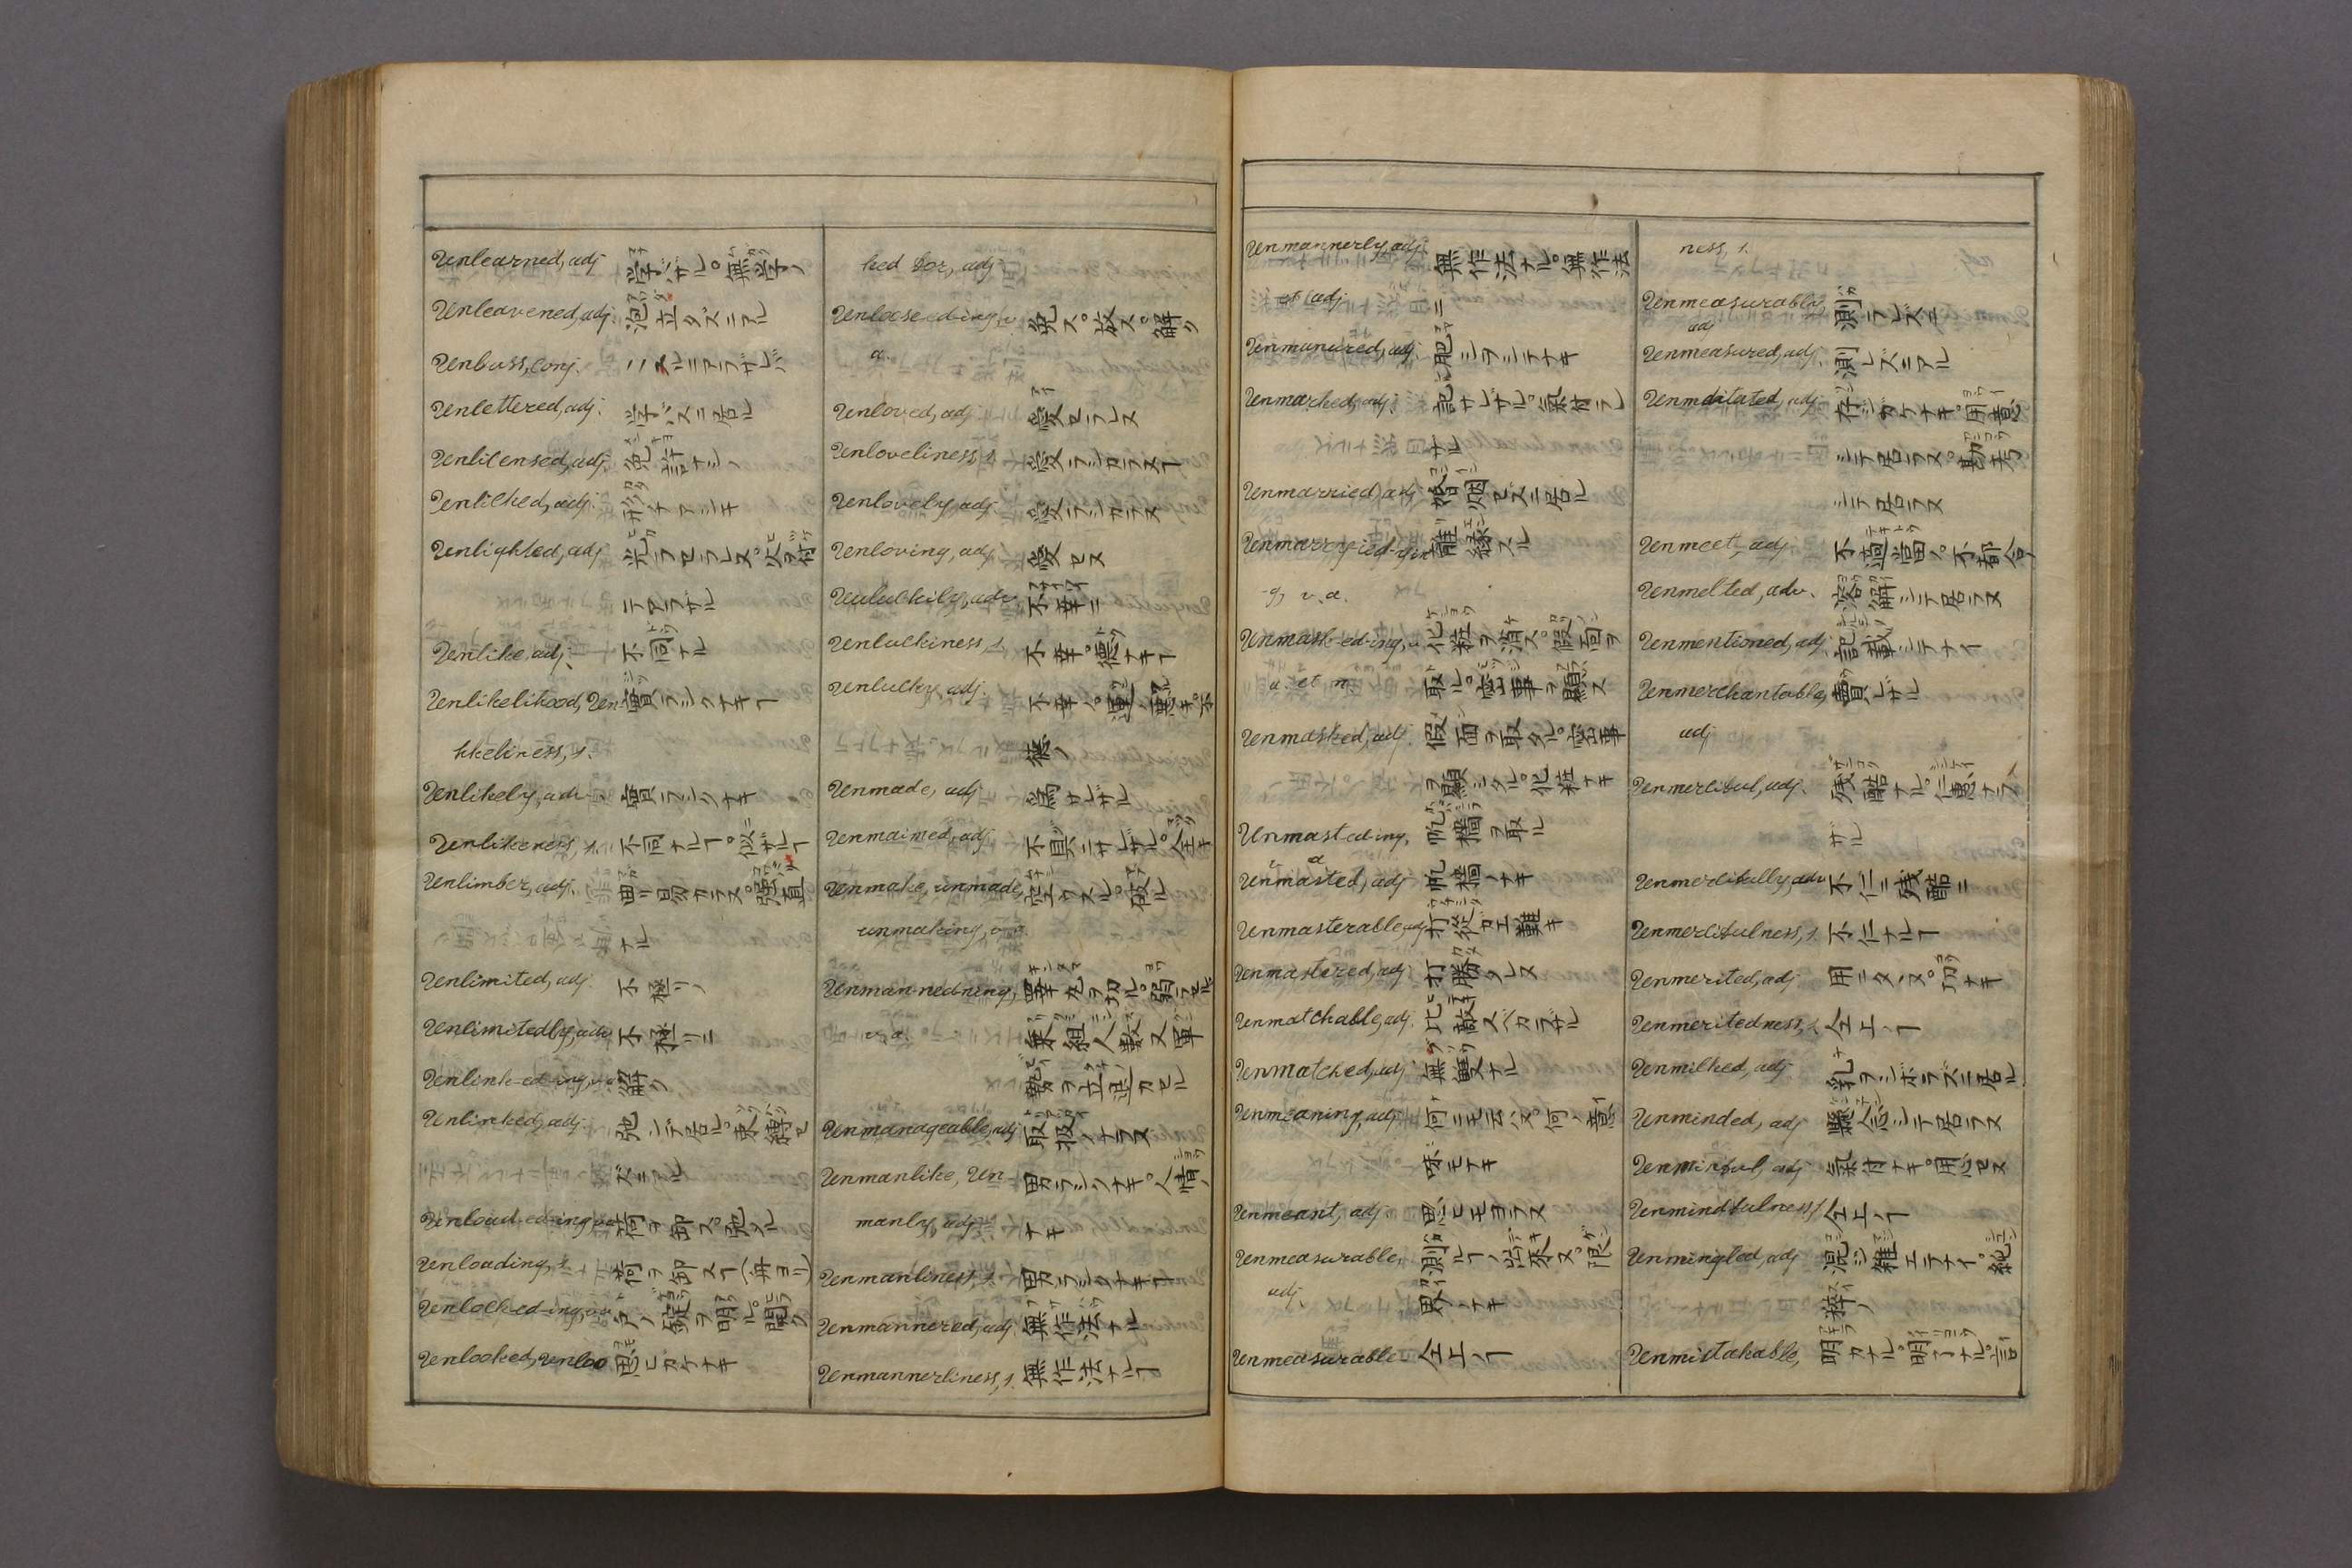 Unlearned, adj 学バザル。無学ノ
Unleavened, adj. 泡立タズニアル
Unless, conj. ニアラザレバ
Unlettered, adj. 学バズニ居ル
Unlicensed, adj. 免許ナシノ
Unlicked, adj. 形チアシキ
Unlighted, adj 光ラセラレヌ。火ヲ附
テアラザル
Unlike, adj. 不同ナル
Unlikelihood, Un 實ラシクナキヿ
likeliness, s.
Unlikely, adv 實ラシクナキ
Unlikeness, s. 不同ナルヿ。似ザルヿ
Unlimber, adj. 曲リ易カラヌ。強直
ナル
Unlimited, adj. 不極リノ
Unlimitedly, adv 不極リニ
Unlink-ed-ing, v.a 解ク
Unlinked, adj. 弛ンデ居ル。束縛セ
ズニアル
Unload-ed-ing, v.a 荷ヲ卸ス。弛タル
Unloading, s. 荷ヲ卸スヿ(舟ヨリ)
Unlock-ed-ing, v.a 戸ノ錠ヲ明ル。開ク
Unlooked, Unloo 思ヒカケナキ
ked for, adj
Unloose-ed-ing, v 免ス。放ス。解ク
a.
Unloved, adj 愛セラレヌ
Unloveliness, s. 愛ラシカラヌヿ
Unlovely, adj. 愛ラシカラヌ
Unloving, adj 愛セヌ
Unluckily, adv 不幸ニ
Unluckiness, s. 不幸。徳ナキヿ
Unlucky, adj. 不幸ノ。運ノ悪キ。不
徳ノ
Unmade, adj 為サレザル
Unmaimed, adj 不具ニサレザル。全キ
Unmake, unmade, 空クスル。破ル
unmaking, v.a.
Unman-ned-ning, 睾丸ヲ切ル。弱ラセル
v.a. 乗組人数又軍
勢ヲ立退カセル
Unmanageable, adj 取扱ノナラヌ
Unmanlike, Un 男ラシクナキ。人情ノ
manly, adj ナキ
Unmanliness, s. 男ラシクナキヿ
Unmannered, adj. 無作法ナル
Unmannerliness, s. 無作法ナルヿ
Unmannerly, adj 無作法ナル。無作法
et adj ニ
Unmanured, adj. 肥シヲシテナキ
Unmarked, adj. 記サレザル。氣付ラレ
ザル
Unmarried, adj 婚姻セズニ居ル
Unmarry-ied-yin 離縁スル
g, v.a.
Unmask-ed-ing, v. 化粧ヲ消ス。假面ヲ
a. et n. 取ル。密事ヲ顕ス
Unmasked, adj. 假面ヲ取タル。密事
ヲ顕シタル。化粧ナキ
Unmast-ed-ing, 帆檣ヲ取ル
v a
Unmasted, adj 帆檣ノナキ
Unmasterable, adj 打従ヘ難キ
Unmastered, adj 打勝タレヌ
Unmatchable, adj. 比敵スベカラザル
Unmatched, adj 無雙ナル
Unmeaning, adj 何ニモ云ハヌ。何ノ意
味モナキ
Unmeant, adj. 思ヒモヨラヌ
Unmeasurable, 測ルヿノ出来ヌ。限
adj. 界ノナキ
Unmeasurable- 仝上ノヿ
ness, s.
Unmeasurably, 測ラレズニ
adj
Unmeasured, adj 測レズニアル
Unmeditated, adj 存ジガケナキ。用意
シテ居ラヌ。勘考
シテ居ラヌ
Unmeet, adj 不適當ノ。不都合ノ
Unmelted, adv. 溶解シテ居ラヌ
Unmentioned, adj 記載シテナイ
Unmerchantable, 賣レザル
adj
Unmerciful, adj. 残酷ナル。仁恵ナラ
ザル
Unmercifully, adv 不仁ニ残酷ニ
Unmercifulness, s. 不仁ナルヿ
Unmerited, adj 用ニタヽヌ。功ナキ
Unmeritedness, s. 仝上ノヿ
Unmilked, adj 乳ヲシボラズニ居ル
Unminded, adj 懸念シテ居ラヌ
Unminful, adj 氣付ナキ。用心セヌ
Unmindfulness, s 仝上ノヿ
Unmingled, adj 混ジ雑エテナイ。純
粋ノ
Unmistakable, 明カナル。明了ナル。言